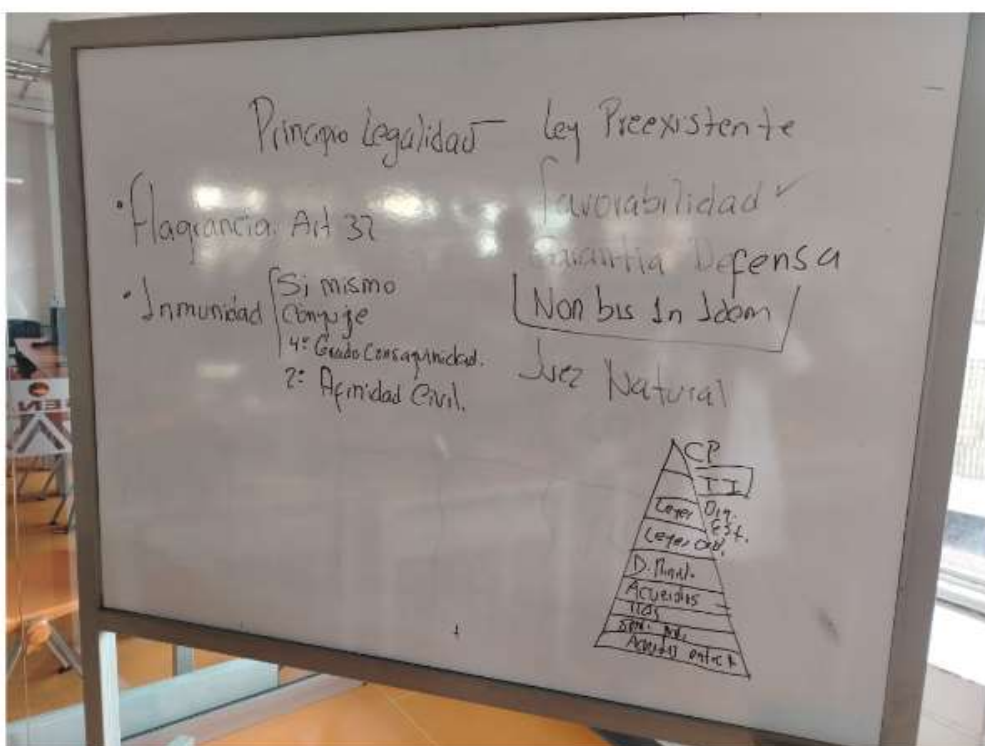 Principio Legalidad — Ley Preexistente
Favorabilidad ✓
Garantia Defensa
Non bis In Idem
Juez Natural
• Flagrancia. Art 32
• Inmunidad
Si mismo
Conyuje
4° Grado Consaguinidad.
2° Afinidad Civil.
CP
T I
Leyes Org.
Est.
Leyes Ord.
Acuerdos